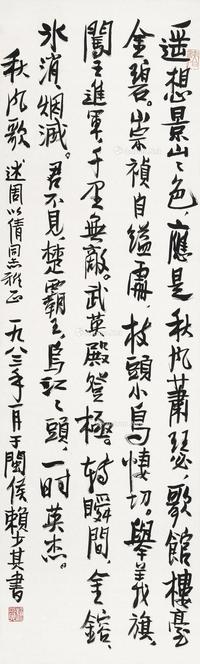 遥想景山山色，應是秋風蕭瑟，歌館樓臺
金碧。崇禎自縊處，枝頭小鳥悽切。舉義旗，
闖王進軍，千里無敵。武英殿登極。轉瞬間，金鎔，
冰消，烟滅。君不見楚霸王，烏江江頭，一时英杰。
秋风歌 述周以倩同志雅正 一九八三年一月于閩侯 賴少其書